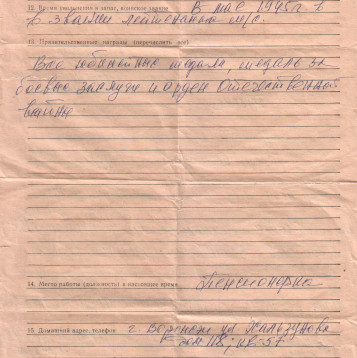 12. Время увольнения в запас, воинское звание В мае 1945 г. в
в звании лейтенант м/с.
13. Правительственные награды (перечислить все)
Все юбилейные медали, медаль за
боевые заслуги и орден Отечественной
войны
14. Место работы (должность) в настоящее время Пенсионерка
15. Домашний адрес, телефон г. Воронеж ул Хользунова
дом 118; кв-57